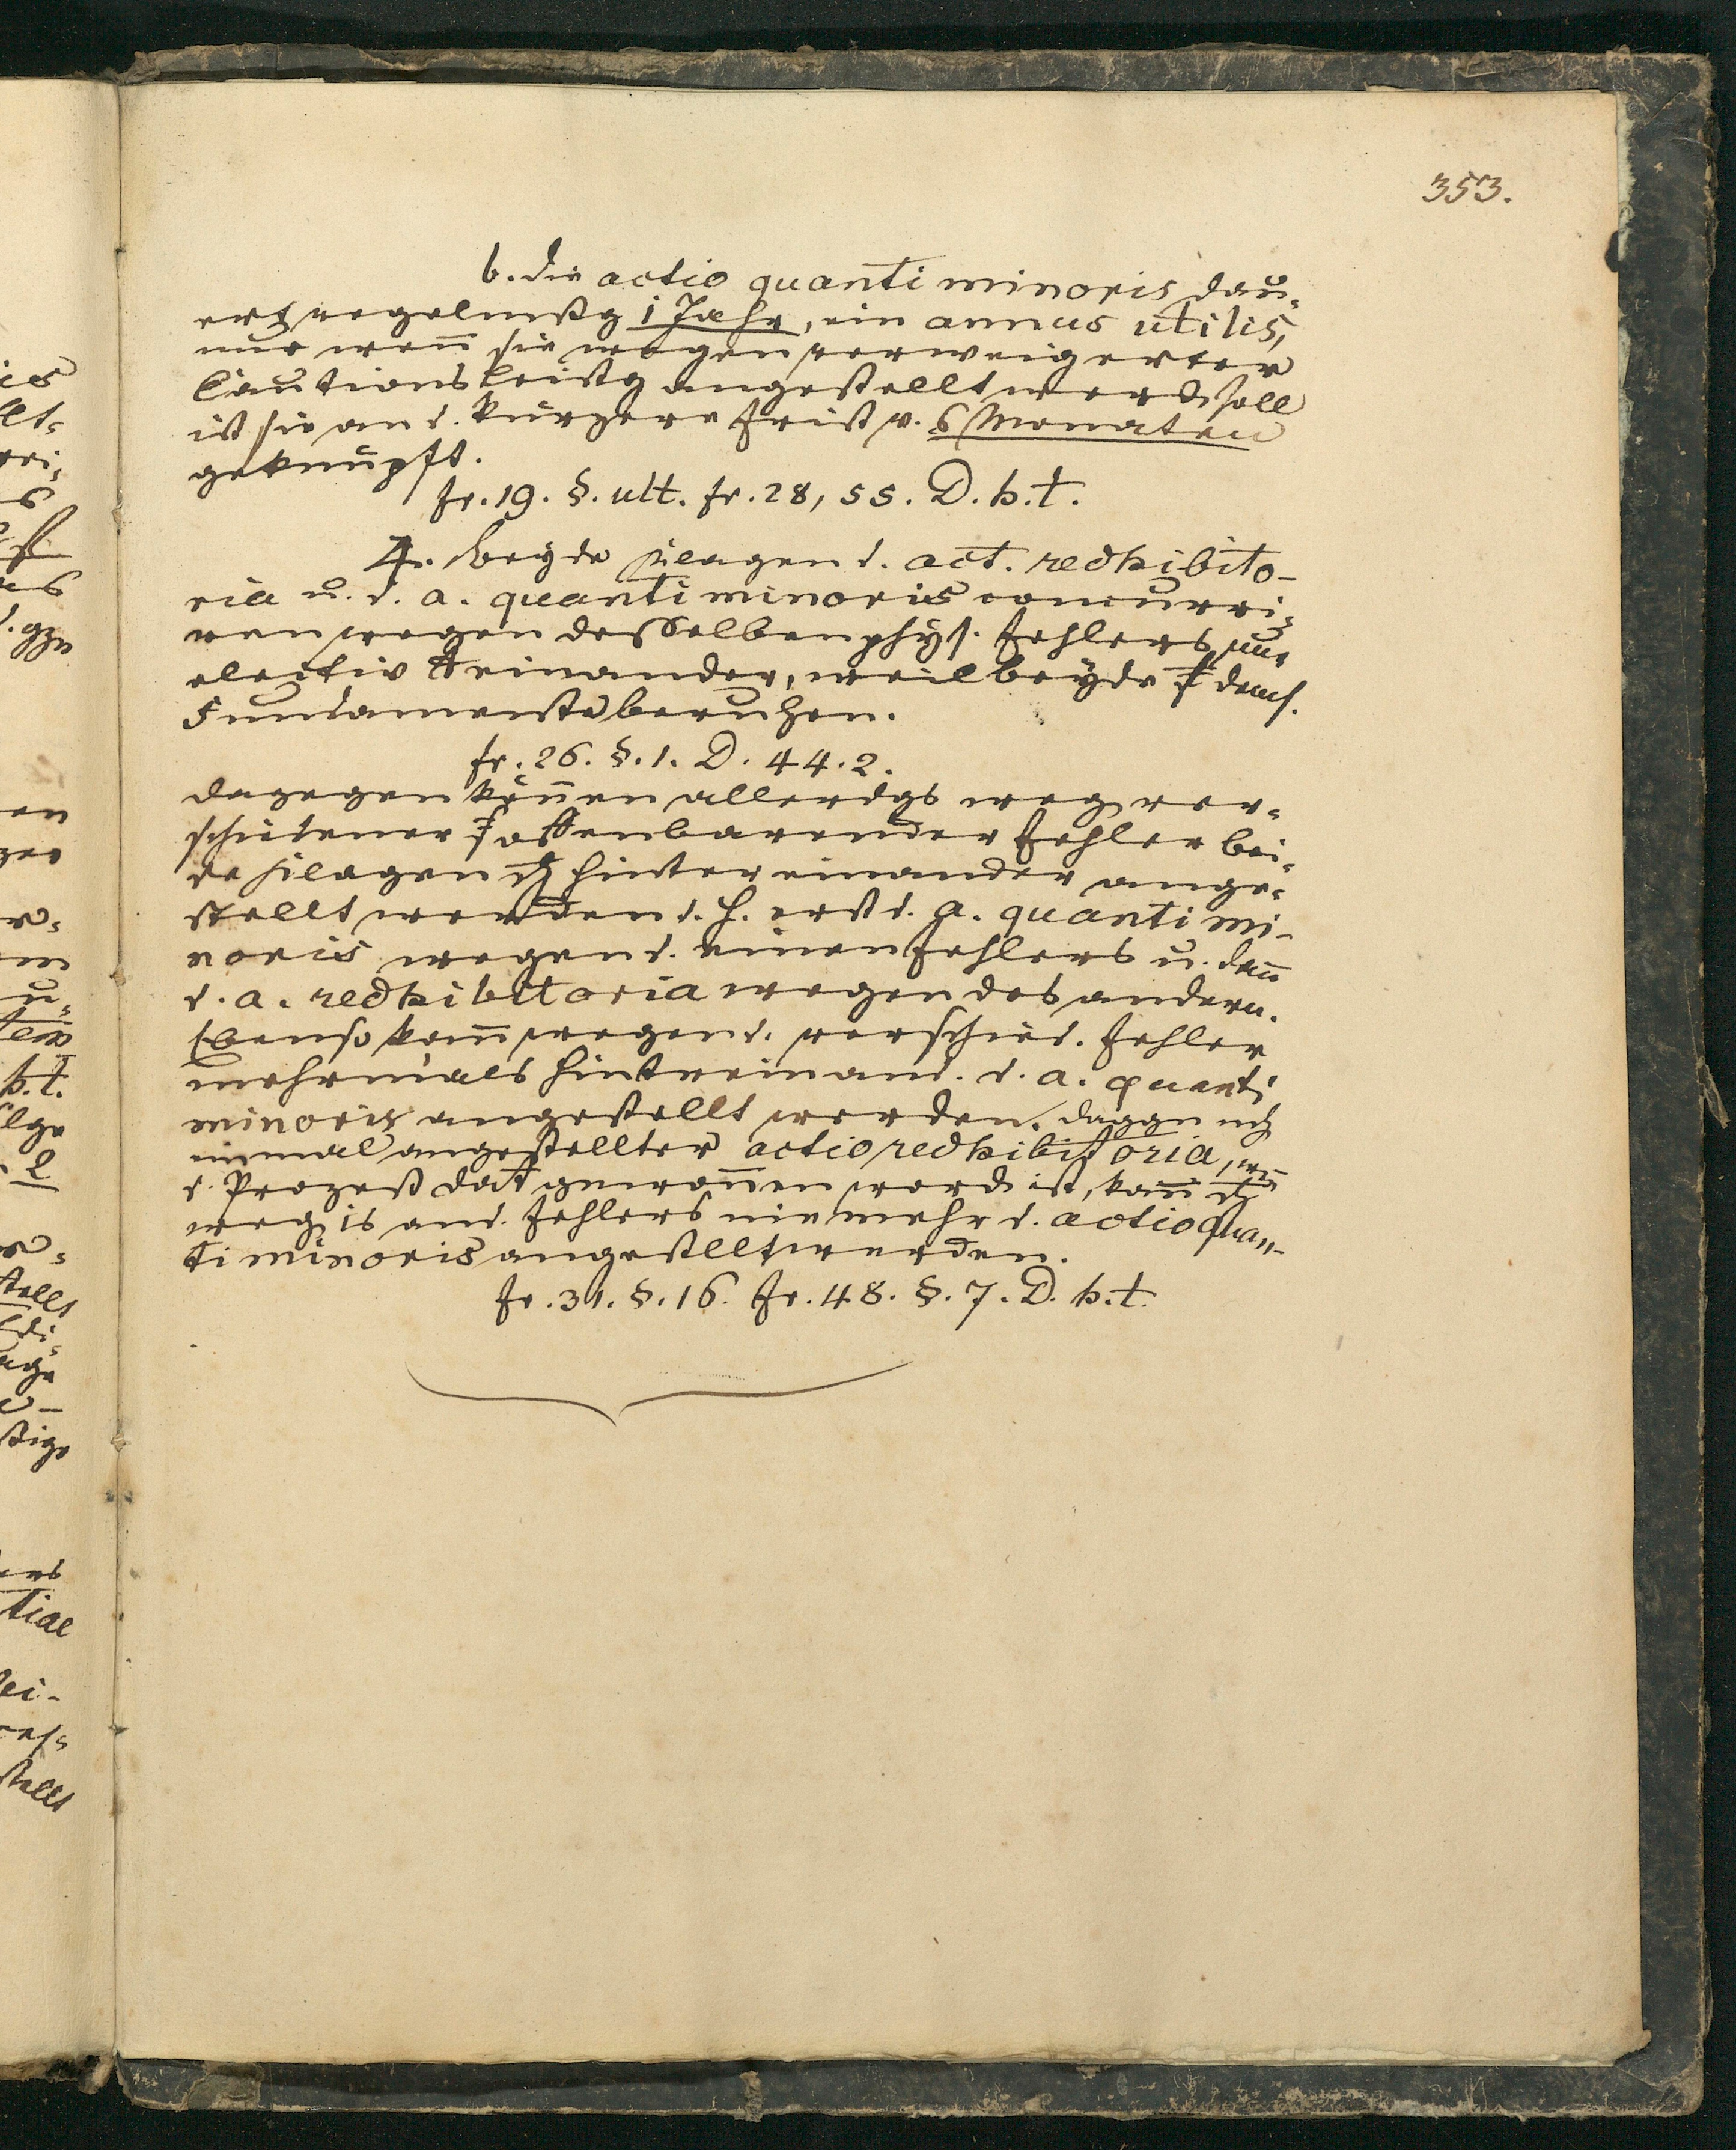 353.
b. Die actio quanti minoris dau-
ert regelmßg 1 Jahr, ein annus utilis,
nur wen̄ sie wegen verweigerter
Cautionsleistg angestellt werd. soll
ist sie an d. kürzere Frist v. 6 Monaten
geknüpft.
fr. 19. §. ult. fr. 28, 55. D. h. t.
4. Beyde Klagen d. act. redhibito-
ria u. d. a. quanti minoris concurri-
ren wegen desselben phys. Fehlers nur
electiv einander, weil beyde dems.
Fundamente beruhen.
fr. 26. §. 1. D. 44. 2.
dagegen kön̄en allerdgs weg. ver-
schiedener offenbarender Fehler bei-
de Klagen hinter einander ange-
stellt werden d. h. erst d. a. quanti mi-
noris wegen d. einen Fehlers u. dan̄
d. a. redhibitoria wegen des andern.
Ebenso kan̄ wegen d. verschied. Fehler
mehrmals hintereinand. d. a. quanti
minoris angestellt werden. daggn nch
einmal angestellter actio redhibitoria, wen̄
d. Prozeß gewon̄en word. ist, kan̄
weg. is and. Fehlers nie mehr d. actio quan-
ti minoris angestellt werden.
fr. 31. §. 16. fr. 48. §. 7. D. h. t.